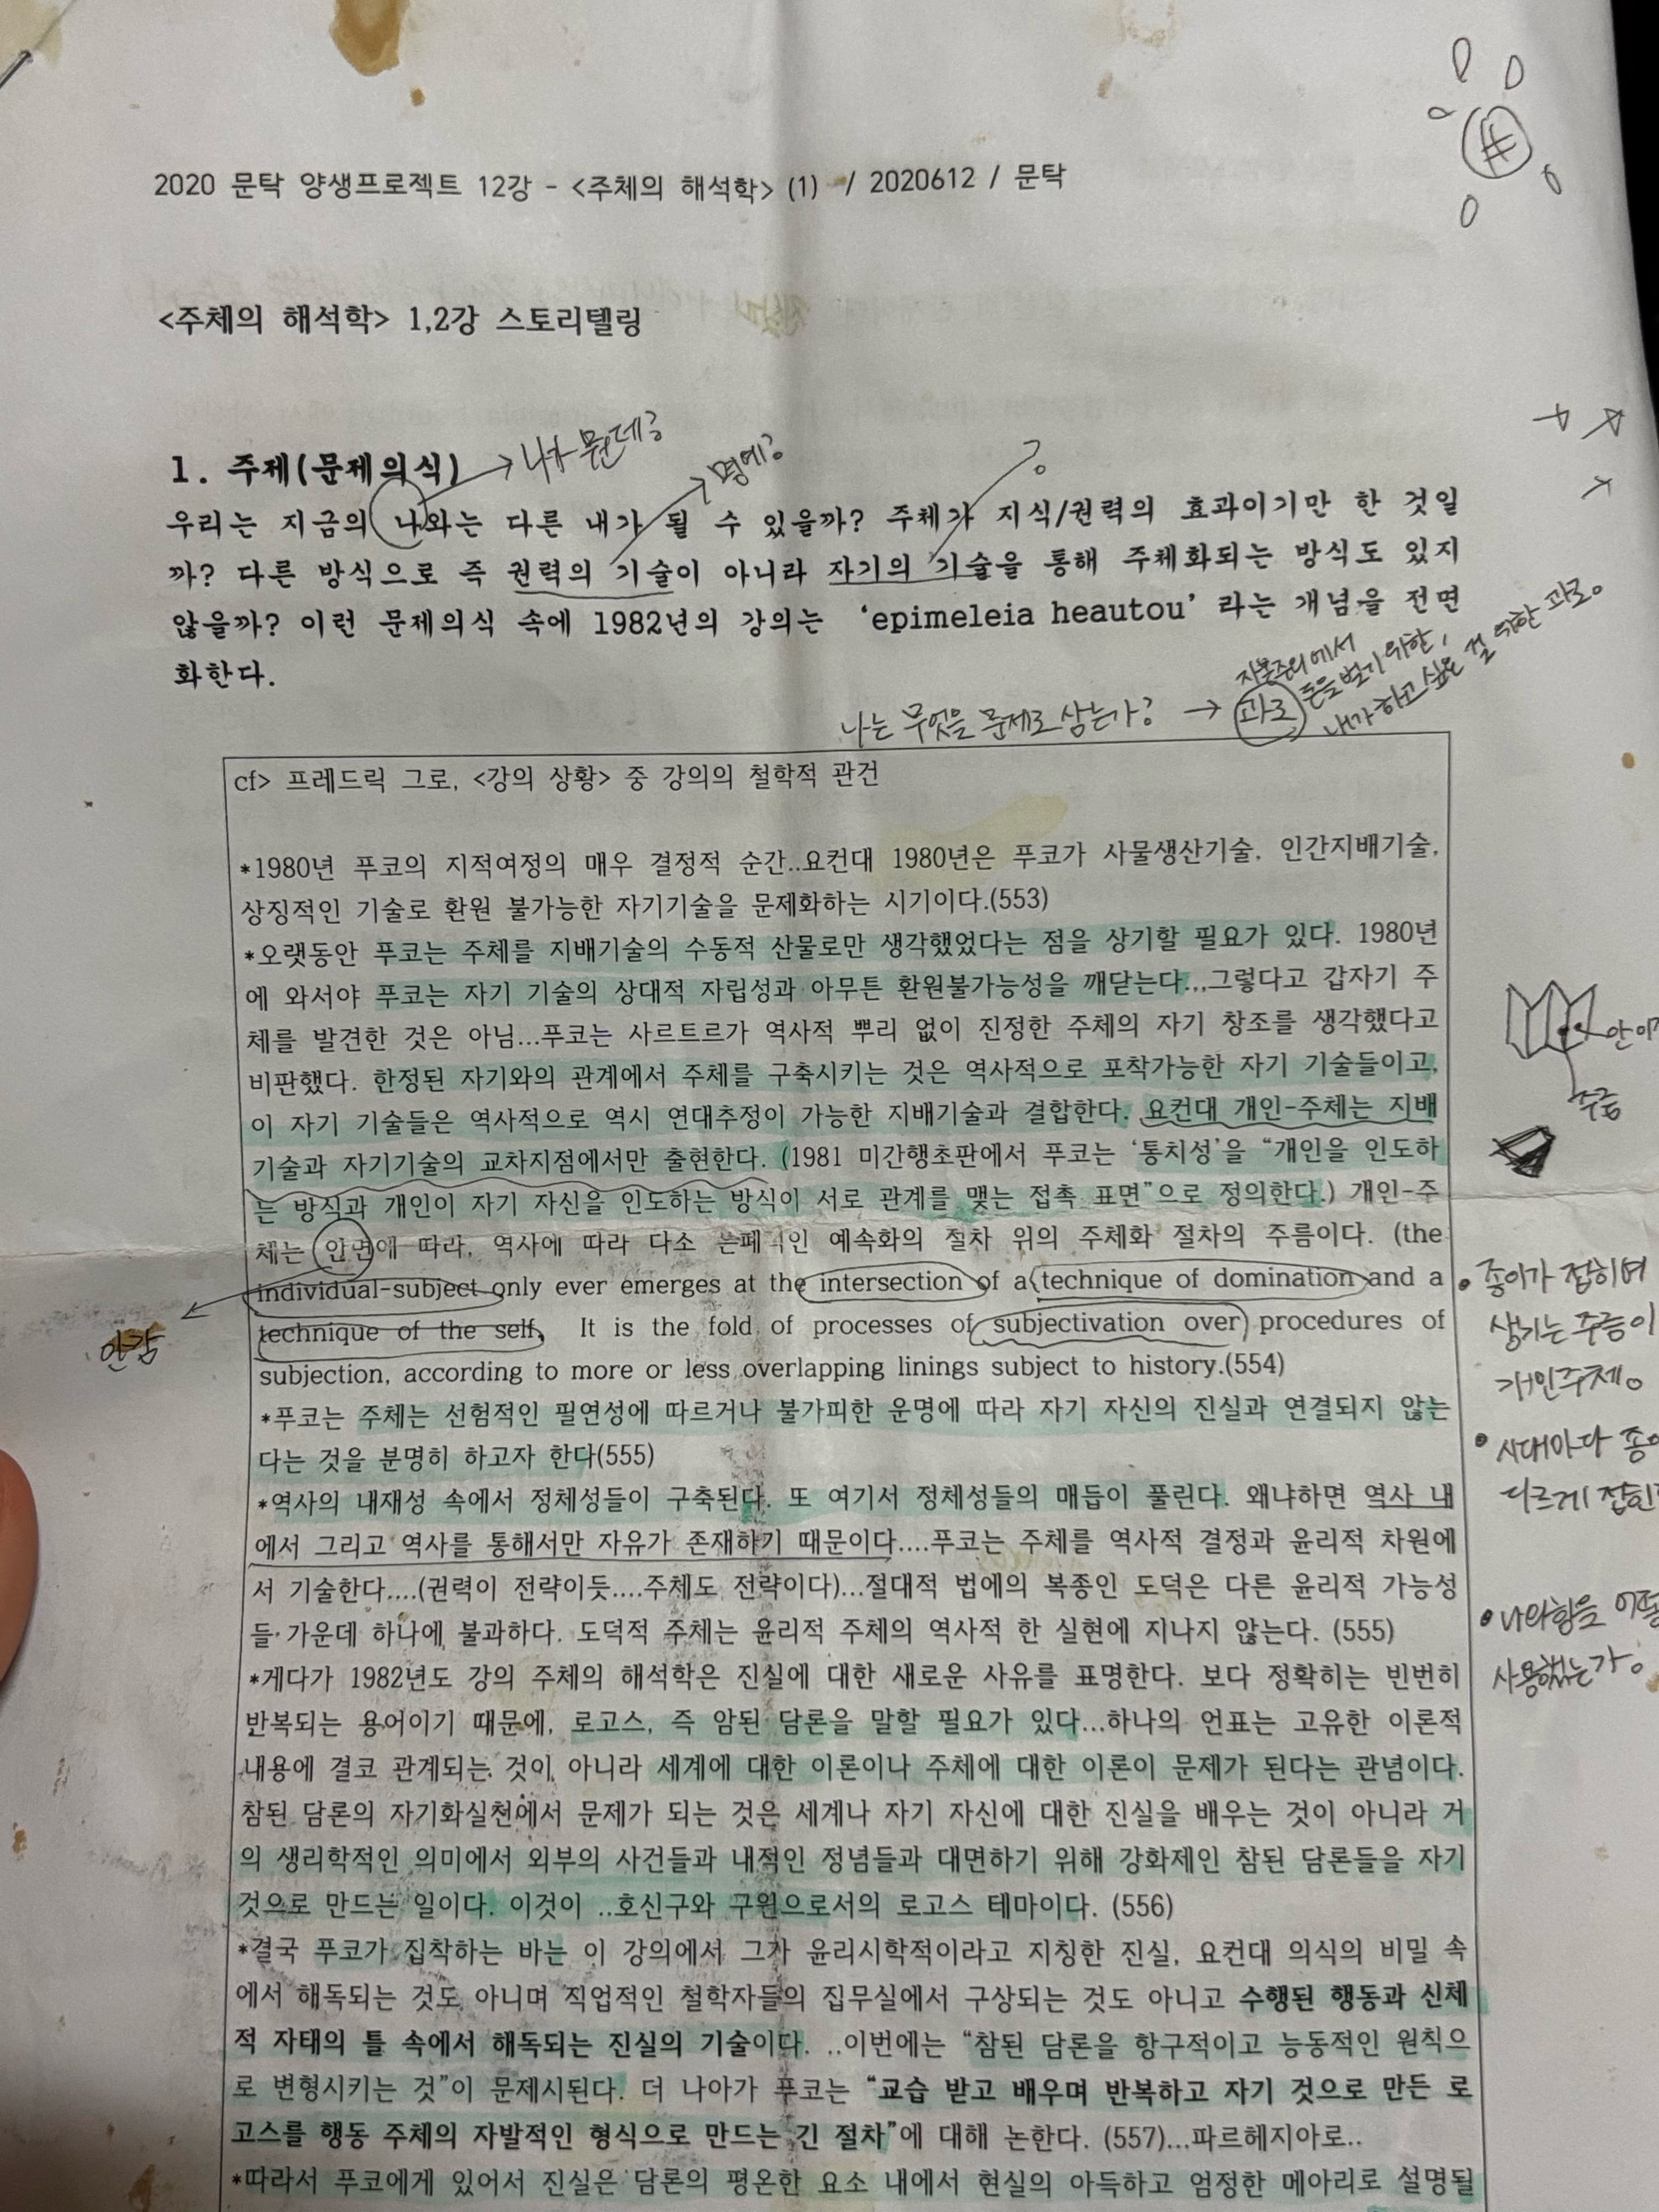 2020 문탁 양생프로젝트 12강 - <주체의 해석학> (1) / 2020612 / 문탁
<주체의 해석학> 1,2강 스토리텔링
→ 나가 뭔데?
→ 명에?
?
1. 주제(문제의식)
우리는 지금의 나와는 다른 내가 될 수 있을까? 주체가 지식/권력의 효과이기만 한 것일
까? 다른 방식으로 즉 권력의 기술이 아니라 자기의 기술을 통해 주체화되는 방식도 있지
않을까? 이런 문제의식 속에 1982년의 강의는 ‘epimeleia heautou’ 라는 개념을 전면
화한다.
나는 무엇을 문제로 삼는가? → 과로
자본주의에서
돈을 벌기 위한,
내가 하고 싶은 걸 위한 과로.
cf> 프레드릭 그로, <강의 상황> 중 강의의 철학적 관건
*1980년 푸코의 지적여정의 매우 결정적 순간..요컨대 1980년은 푸코가 사물생산기술, 인간지배기술,
상징적인 기술로 환원 불가능한 자기기술을 문제화하는 시기이다.(553)
*오랫동안 푸코는 주체를 지배기술의 수동적 산물로만 생각했었다는 점을 상기할 필요가 있다. 1980년
에 와서야 푸코는 자기 기술의 상대적 자립성과 아무튼 환원불가능성을 깨닫는다...그렇다고 갑자기 주
체를 발견한 것은 아님...푸코는 사르트르가 역사적 뿌리 없이 진정한 주체의 자기 창조를 생각했다고
비판했다. 한정된 자기와의 관계에서 주체를 구축시키는 것은 역사적으로 포착가능한 자기 기술들이고,
이 자기 기술들은 역사적으로 역시 연대추정이 가능한 지배기술과 결합한다. 요컨대 개인-주체는 지배
기술과 자기기술의 교차지점에서만 출현한다. (1981 미간행초판에서 푸코는 ‘통치성’을 “개인을 인도하
는 방식과 개인이 자기 자신을 인도하는 방식이 서로 관계를 맺는 접촉 표면”으로 정의한다.) 개인-주
체는 안면에 따라, 역사에 따라 다소 은폐적인 예속화의 절차 위의 주체화 절차의 주름이다. (the
individual-subject only ever emerges at the intersection of a technique of domination and a
technique of the self. It is the fold of processes of subjectivation over procedures of
subjection, according to more or less overlapping linings subject to history.(554)
*푸코는 주체는 선험적인 필연성에 따르거나 불가피한 운명에 따라 자기 자신의 진실과 연결되지 않는
다는 것을 분명히 하고자 한다(555)
*역사의 내재성 속에서 정체성들이 구축된다. 또 여기서 정체성들의 매듭이 풀린다. 왜냐하면 역사 내
에서 그리고 역사를 통해서만 자유가 존재하기 때문이다....푸코는 주체를 역사적 결정과 윤리적 차원에
서 기술한다....(권력이 전략이듯....주체도 전략이다)...절대적 법에의 복종인 도덕은 다른 윤리적 가능성
들 가운데 하나에 불과하다. 도덕적 주체는 윤리적 주체의 역사적 한 실현에 지나지 않는다. (555)
*게다가 1982년도 강의 주체의 해석학은 진실에 대한 새로운 사유를 표명한다. 보다 정확히는 빈번히
반복되는 용어이기 때문에, 로고스, 즉 참된 담론을 말할 필요가 있다...하나의 언표는 고유한 이론적
내용에 결코 관계되는 것이 아니라 세계에 대한 이론이나 주체에 대한 이론이 문제가 된다는 관념이다.
참된 담론의 자기화실천에서 문제가 되는 것은 세계나 자기 자신에 대한 진실을 배우는 것이 아니라 거
의 생리학적인 의미에서 외부의 사건들과 내적인 정념들과 대면하기 위해 강화제인 참된 담론들을 자기
것으로 만드는 일이다. 이것이 ..호신구와 구원으로서의 로고스 테마이다. (556)
*결국 푸코가 집착하는 바는 이 강의에서 그가 윤리시학적이라고 지칭한 진실, 요컨대 의식의 비밀 속
에서 해독되는 것도 아니며 직업적인 철학자들의 집무실에서 구상되는 것도 아니고 수행된 행동과 신체
적 자태의 틀 속에서 해독되는 진실의 기술이다. ..이번에는 “참된 담론을 항구적이고 능동적인 원칙으
로 변형시키는 것”이 문제시된다. 더 나아가 푸코는 “교습 받고 배우며 반복하고 자기 것으로 만든 로
고스를 행동 주체의 자발적인 형식으로 만드는 긴 절차”에 대해 논한다. (557)...파르헤지아로..
*따라서 푸코에게 있어서 진실은 담론의 평온한 요소 내에서 현실의 아득하고 엄정한 메아리로 설명될
안감
주름
• 종이가 접히며
생기는 주름이
개인주체.
• 시대마다 종
다르게 접힌
사용했는가.